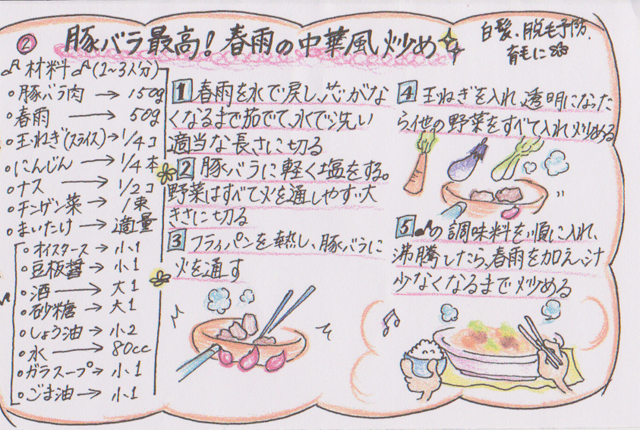 ② 豚バラ最高!春雨の中華風炒め
白髪、脱毛予防、
育毛に
材料(1~3人分)
豚バラ肉→150g
春雨→50g
玉ねぎ(スライス)→1/4コ
にんじん→1/4本
ナス→1/2コ
チンゲン菜→1束
まいたけ→適量
オイスターソース→小1
豆板醤→小1
酒→大1
砂糖→大1
しょう油→小2
水→80cc
ガラスープ→小1
ごま油→小1
1 春雨を水で戻し、芯がな
くなるまで茹でて、水で洗い
適当な長さに切る
2 豚バラに軽く塩をする。
野菜はすべて火を通しやす大
きさに切る
3 フライパンを熱し、豚バラに
火を通す
4 玉ねぎを入れ、透明になった
ら、他の野菜をすべて入れ炒める
5 の調味料を順に入れ、
沸騰したら、春雨を加え、汁
少なくなるまで炒める